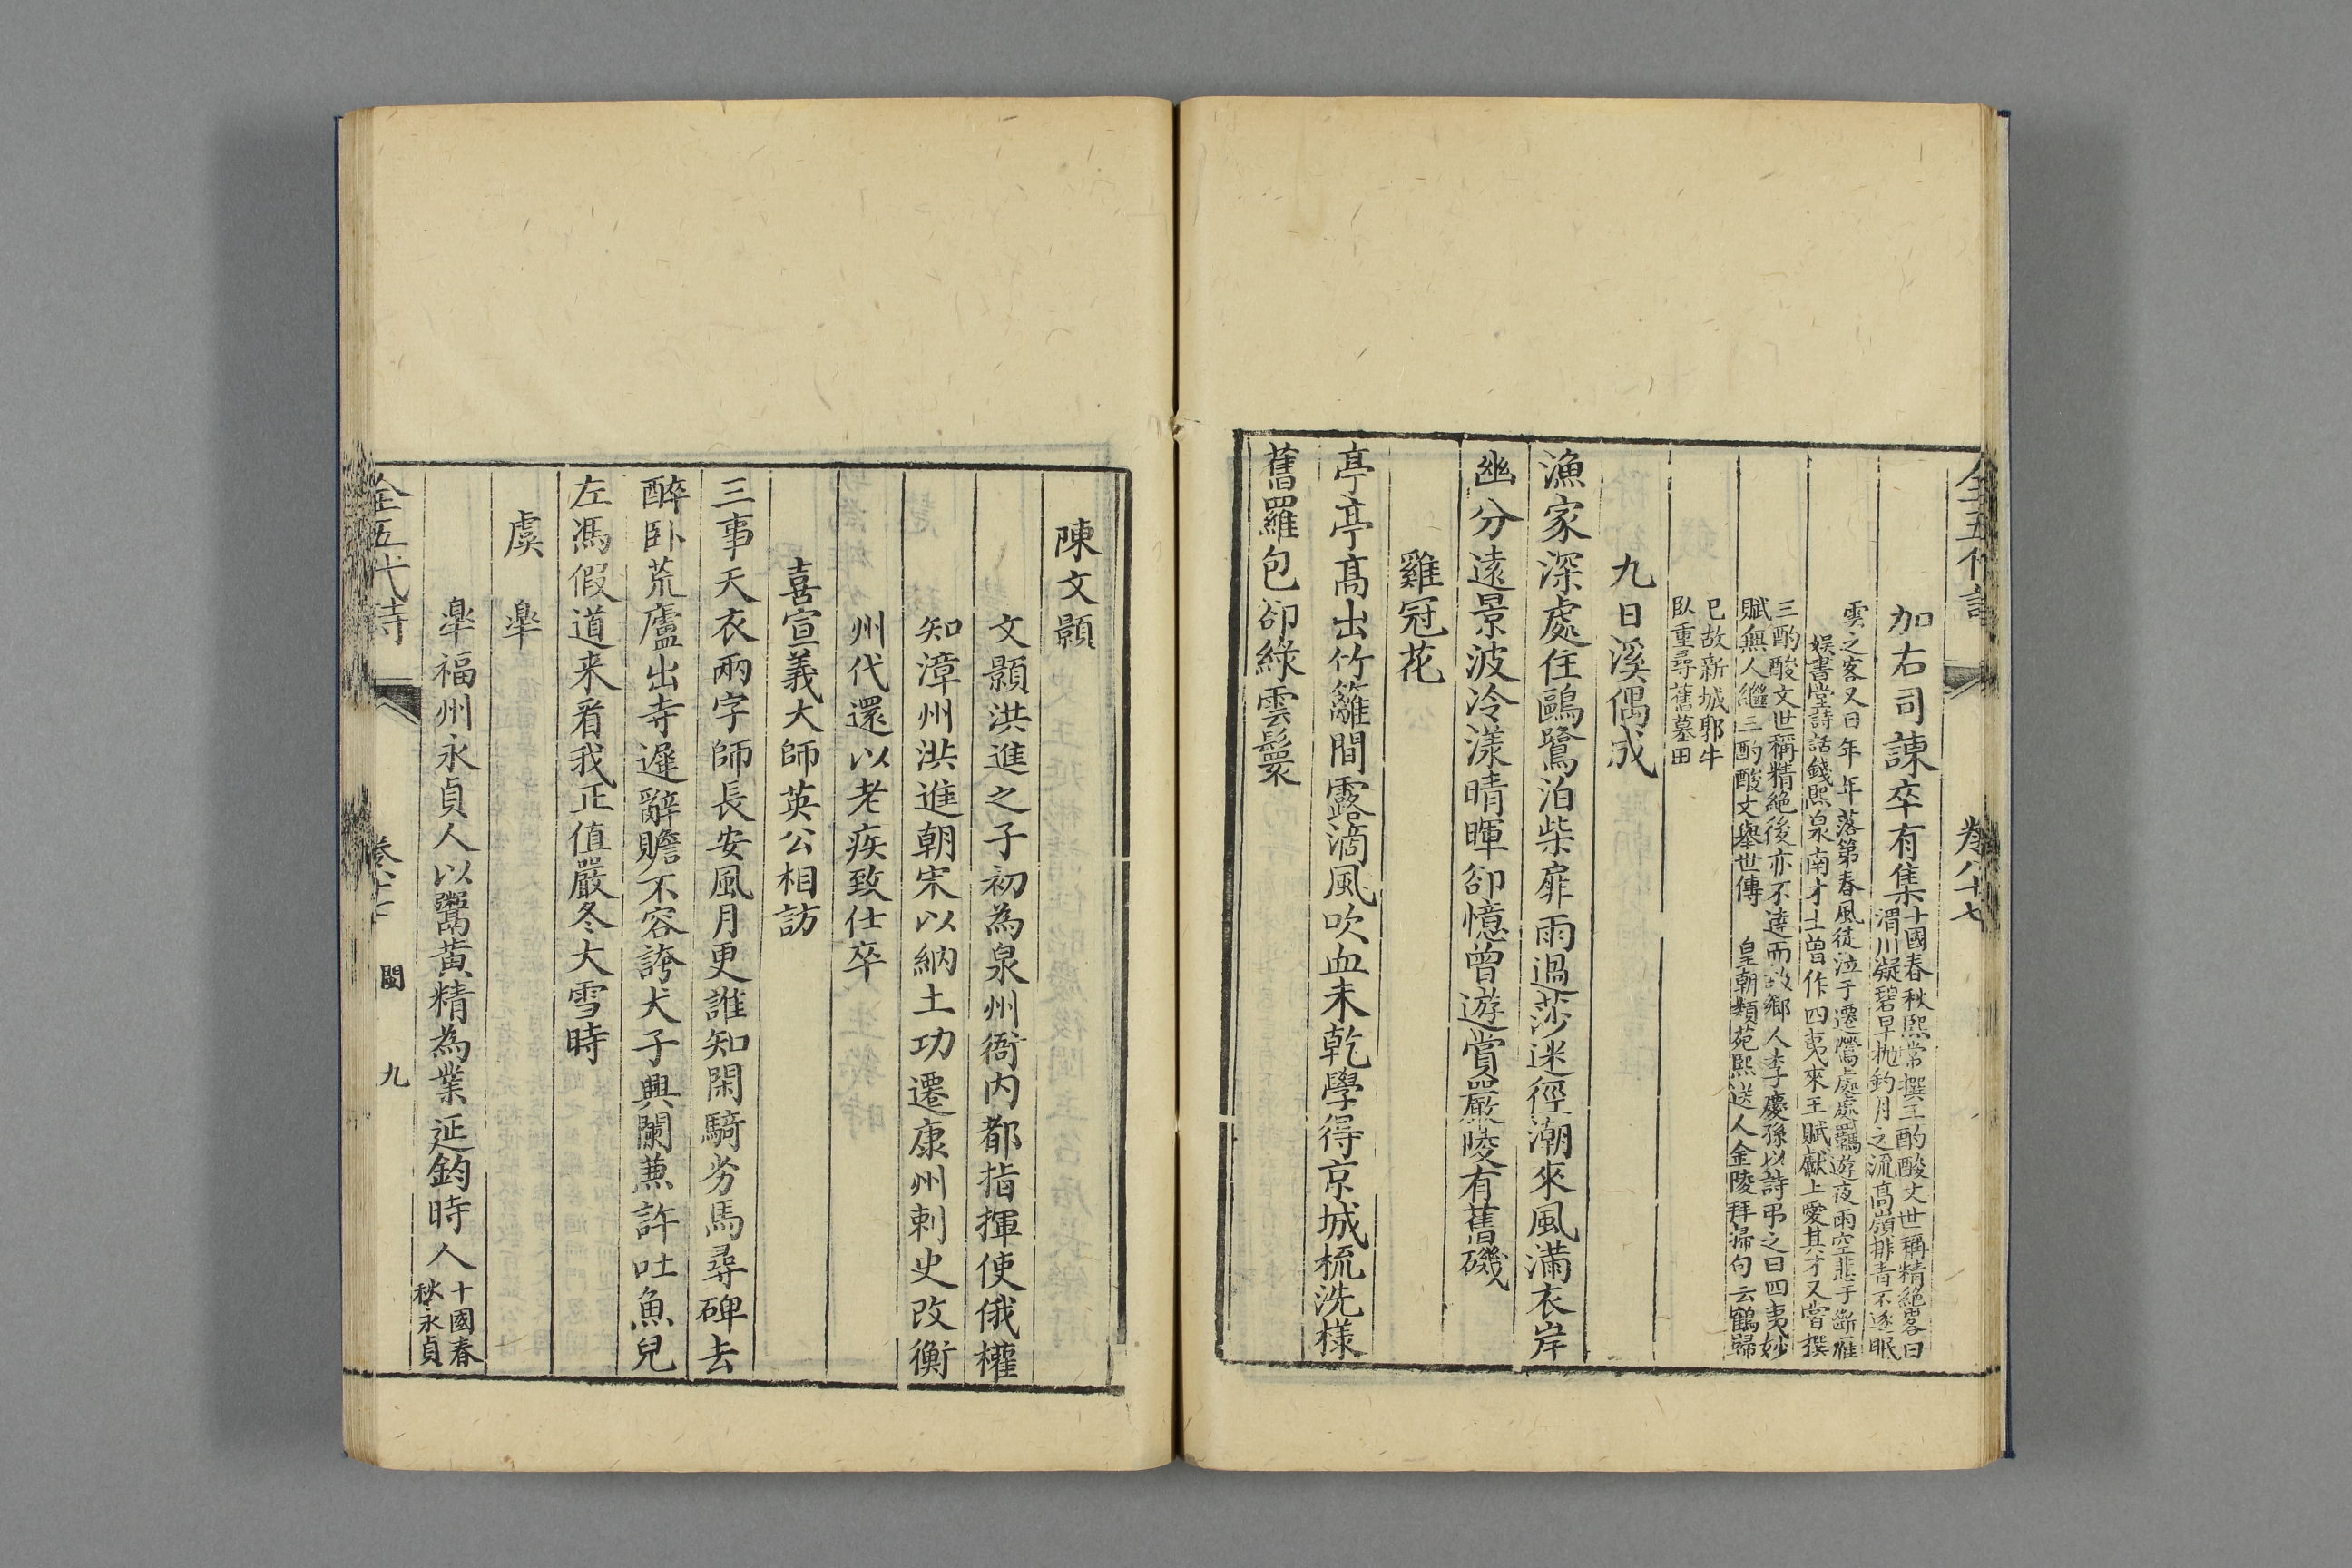 全五代詩 卷八十七
加右司諫卒有集十國春秋熙常撰三酌酸文世稱精絶畧曰
渭川凝碧早抛釣月之流髙嶺排青不逐眠
雲之客又曰年年落第春風徒泣于遷鶯處處羈遊夜雨空悲于斷雁
娱書堂詩話錢熙泉南才士曽作四夷來王賦獻上愛其才又嘗撰
三酌酸文世稱精絶後亦不達而故鄉人李慶孫以詩弔之曰四夷妙
賦無人繼三酌酸文舉世傳 皇朝類苑熙送人金陵拜掃句云鶴歸
已故新城郭牛
臥重尋舊墓田
九日溪偶成
漁家深處住鷗鷺泊柴扉雨過莎迷徑潮來風滿衣岸
幽分遠景波冷漾晴暉卻憶曽遊賞嚴陵有舊磯
雞冠花
亭亭髙出竹籬間露滴風吹血未乾學得京城梳洗様
舊羅包卻綠雲鬟
陳文顥
文顥洪進之子初為泉州衙内都指揮使俄權
知漳州洪進朝宋以納土功遷康州刺史改衡
州代還以老疾致仕卒
喜宣義大師英公相訪
三事天衣兩字師長安風月更誰知閑騎劣馬尋碑去
醉卧荒廬出寺遲辭贍不容誇犬子興闌兼許吐魚兒
左馮假道来看我正值嚴冬大雪時
虞 臯
臯福州永貞人以鬻黄精為業延鈞時人十國春
秋永貞
全五代詩 卷八十七 閩 九